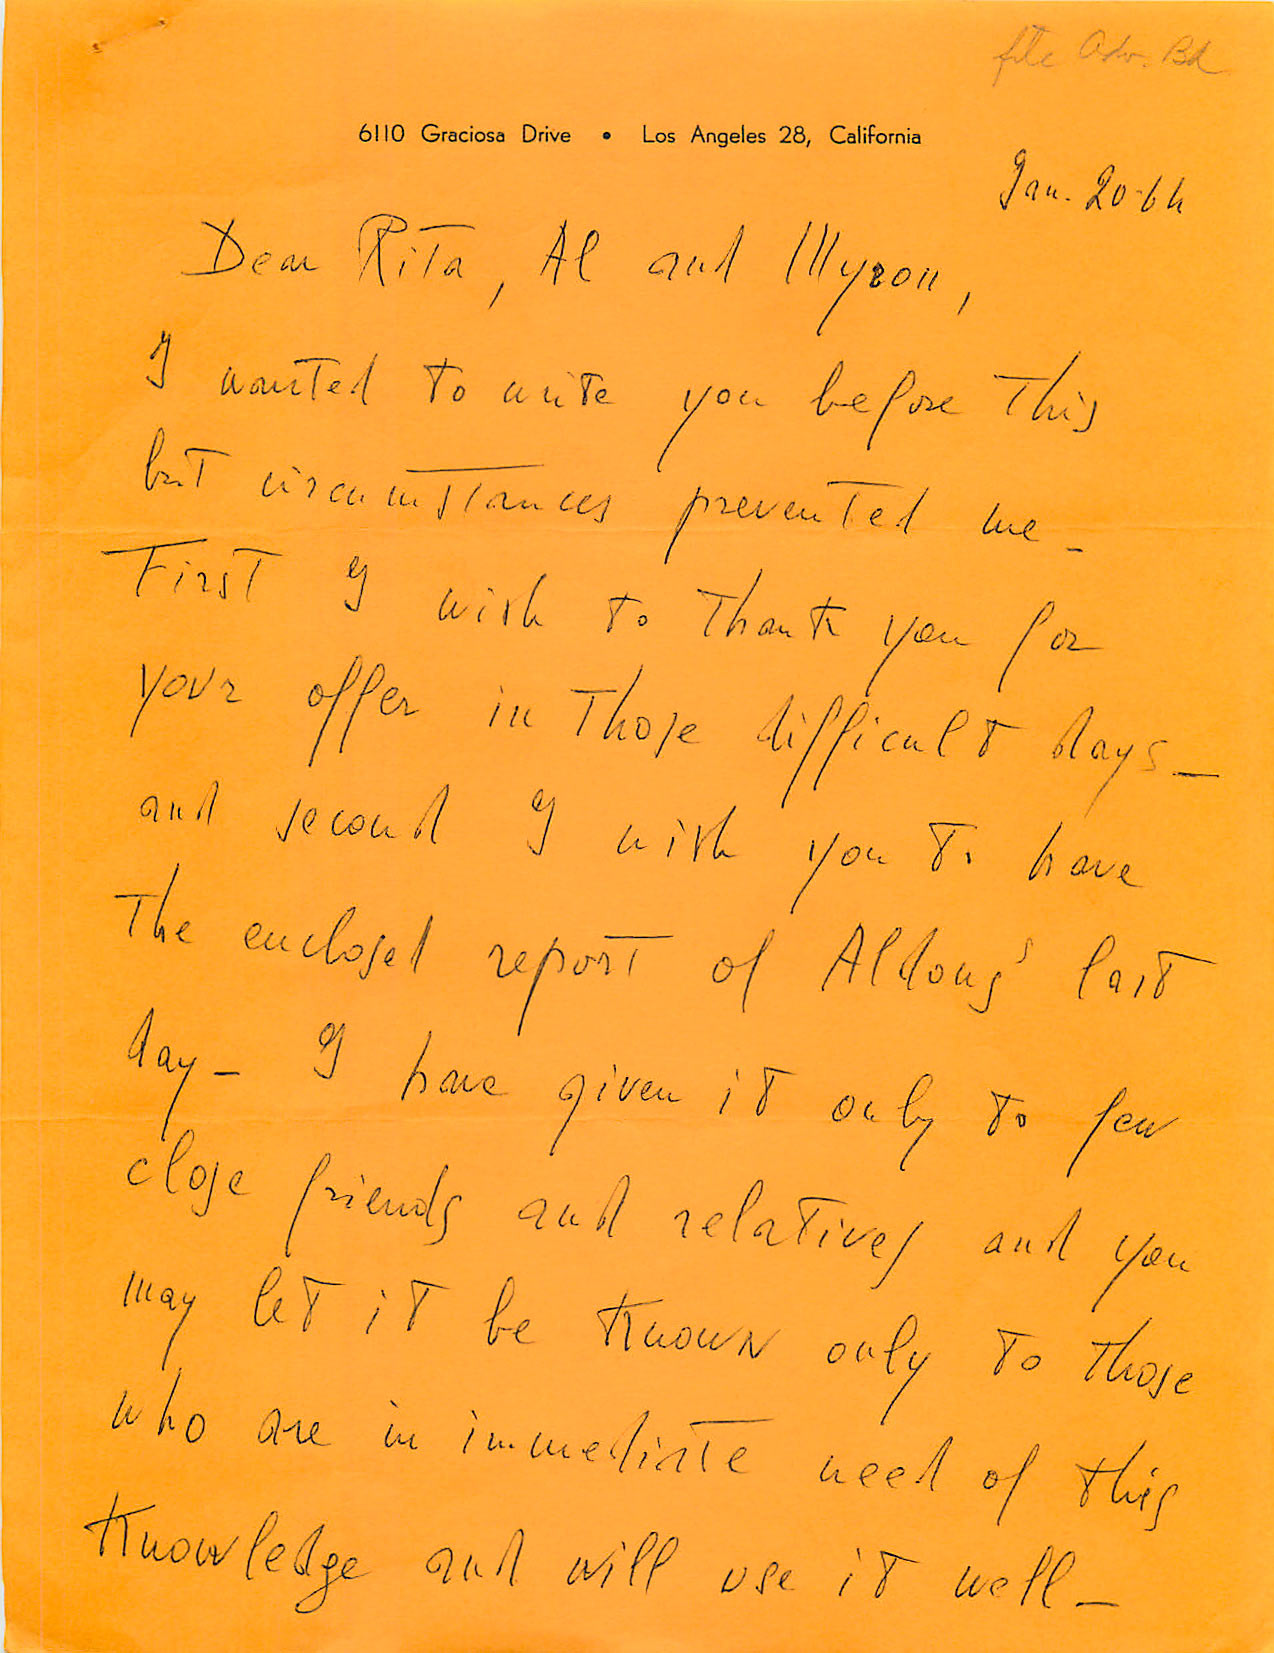 file Adv. Bd
6110 Graciosa Drive • Los Angeles 28, California
Jan. 20-64
Dear Rita, Al and Myron,
I wanted to write you before this
but circumstances prevented me_
First I wish to thank you for
your offer in those difficult days_
and second I wish you to have
the enclosed report of Aldous' last
day_ I have given it only to few
close friends and relatives and you
may let it be known only to those
who are in immediate need of this
knowledge and will use it well_